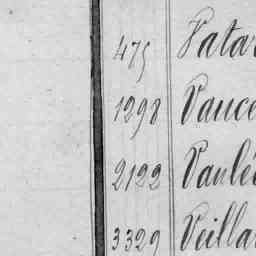 475 Vatar
1298 Vauce
2122 Vaulé
3329 Veilla